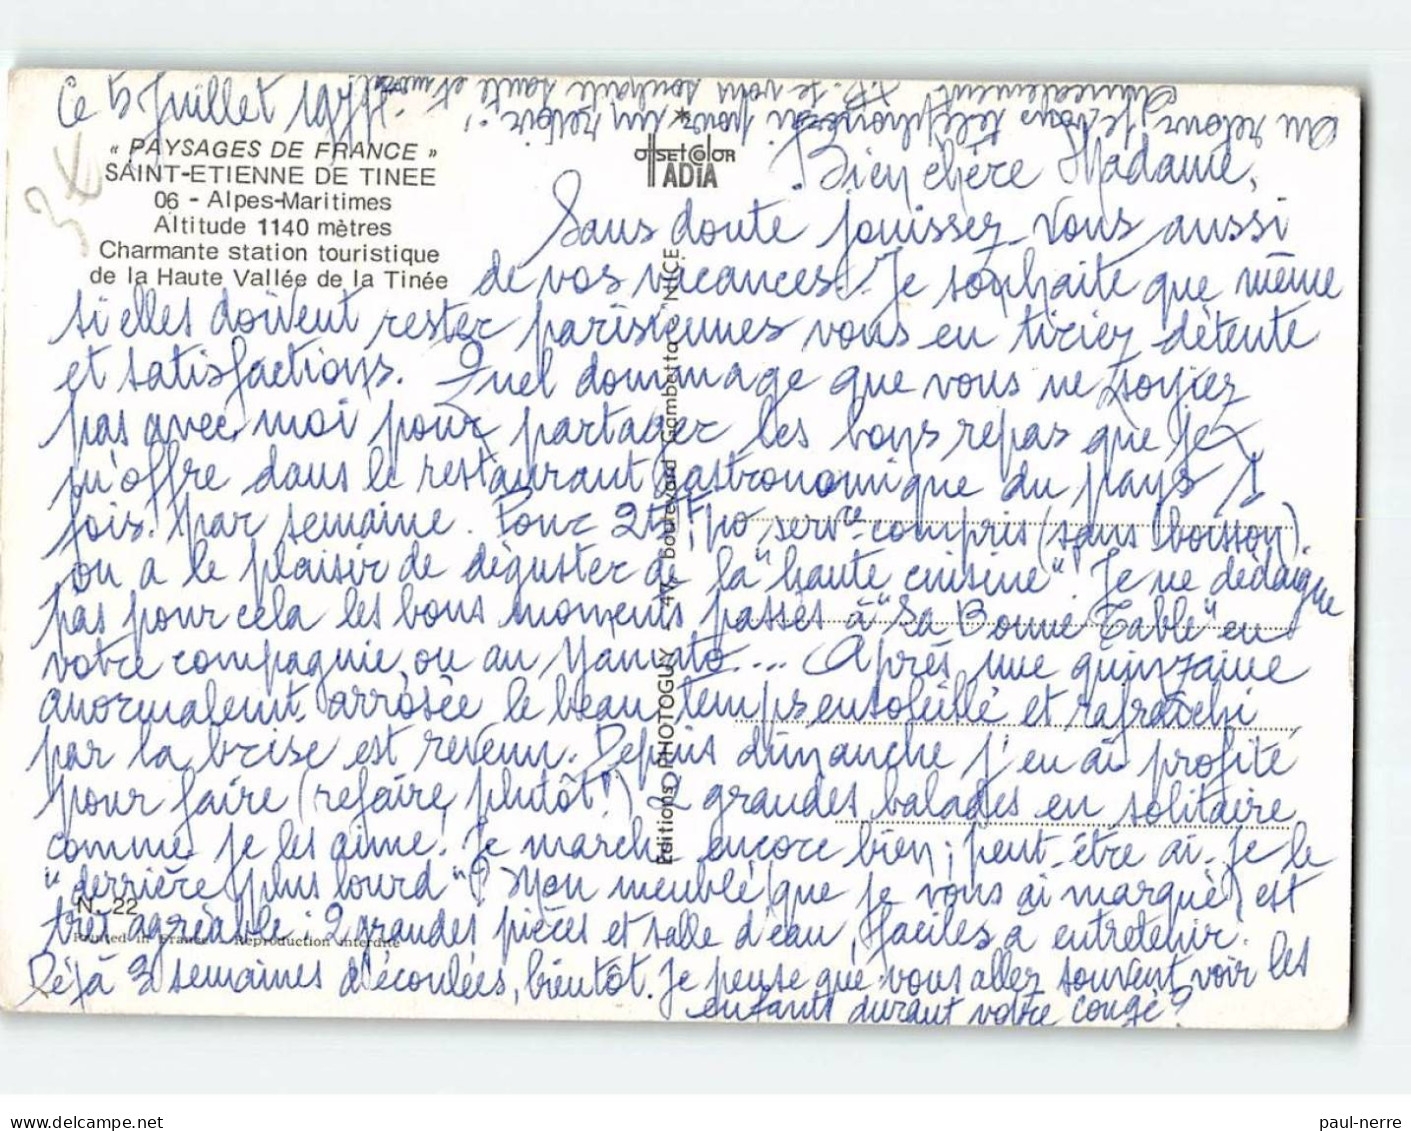 Ce 5 Juillet 1977.
« PAYSAGES DE FRANCE »
SAINT-ETIENNE DE TINEE
06 - Alpes-Maritimes
Altitude 1140 mètres
Charmante station touristique
de la Haute Vallée de la Tinée
3€
OFFSET COLOR
ADIA
Editions PHOTOGUY - 49, boulevard Gambetta - NICE
Bien chère Madame,
Sans doute jouissez-vous aussi
de vos vacances. Je souhaite que même
si elles doivent rester parisiennes vous en tiriez détente
et satisfactions. Quel dommage que vous ne soyiez
pas avec moi pour partager les bons repas que je
m'offre dans le restaurant gastronomique du pays 1
fois par semaine. Pour 25F,90 servce compris (sans boisson).
on a le plaisir de déguster de la "haute cuisine". Je ne dédaigne
pas pour cela les bons moments passés à "La Bonne Table" en
votre compagnie, ou au Yamato.... Après une quinzaine
anormalemt. arrosée le beau temps ensoleillé et rafraîchi
par la brise est revenu. Depuis dimanche j'en ai profité
pour faire (refaire, plutôt!) 2 grandes balades en solitaire
comme je les aime. Je marche encore bien; peut-être ai-je le
"derrière plus lourd"? Mon meublé (que je vous ai marqué) est
très agréable: 2 grandes pièces et salle d'eau, faciles à entretenir.
N. 22
Printed in France Reproduction interdite
Déjà 3 semaines d'écoulées, bientôt. Je pense que vous allez souvent voir les
enfants durant votre congé?
Au retour, je vous téléphonerai pour un revoir.
Amicalement Je vous souhaite santé et
delcampe.net
paul-nerre